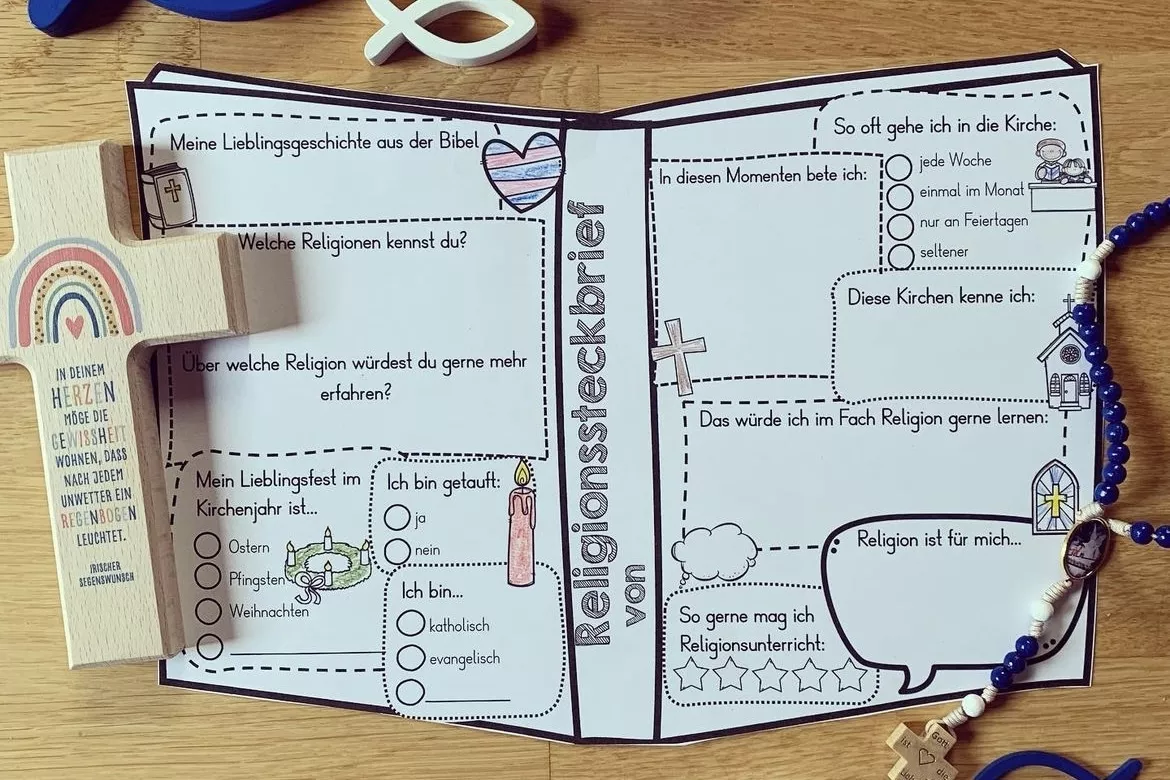 IN DEINEM
HERZEN
MÖGE DIE
GEWISSHEIT
WOHNEN, DASS
NACH JEDEM
UNWETTER EIN
REGENBOGEN
LEUCHTET.
IRISCHER
SEGENSWUNSCH
Meine Lieblingsgeschichte aus der Bibel
Welche Religionen kennst du?
Über welche Religion würdest du gerne mehr
erfahren?
Mein Lieblingsfest im
Kirchenjahr ist...
Ostern
Pfingsten
Weihnachten
Ich bin getauft:
ja
nein
Ich bin...
katholisch
evangelisch
Religionssteckbrief
von
So oft gehe ich in die Kirche:
jede Woche
einmal im Monat
nur an Feiertagen
seltener
In diesen Momenten bete ich:
Diese Kirchen kenne ich:
Das würde ich im Fach Religion gerne lernen:
Religion ist für mich...
So gerne mag ich
Religionsunterricht:
Gott
ist
die